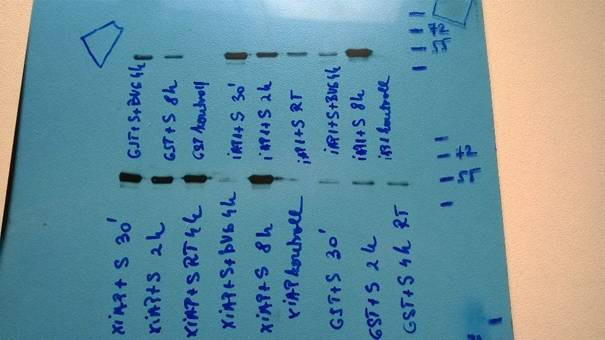 GST+S+BV6 4h
GST+S 8h
GST kontroll
iAP1+S 30'
iAP1+S 2h
iAP1+S RT
iAP1+S+BV6 4h
iAP1+S 8h
iAP1 kontroll
XiAP+S 30'
XiAP+S 2h
XiAP+S RT 4h
XiAP+S+BV6 4h
XiAP+S 8h
XiAP kontroll
GST+S 30'
GST+S 2h
GST+S 4h RT